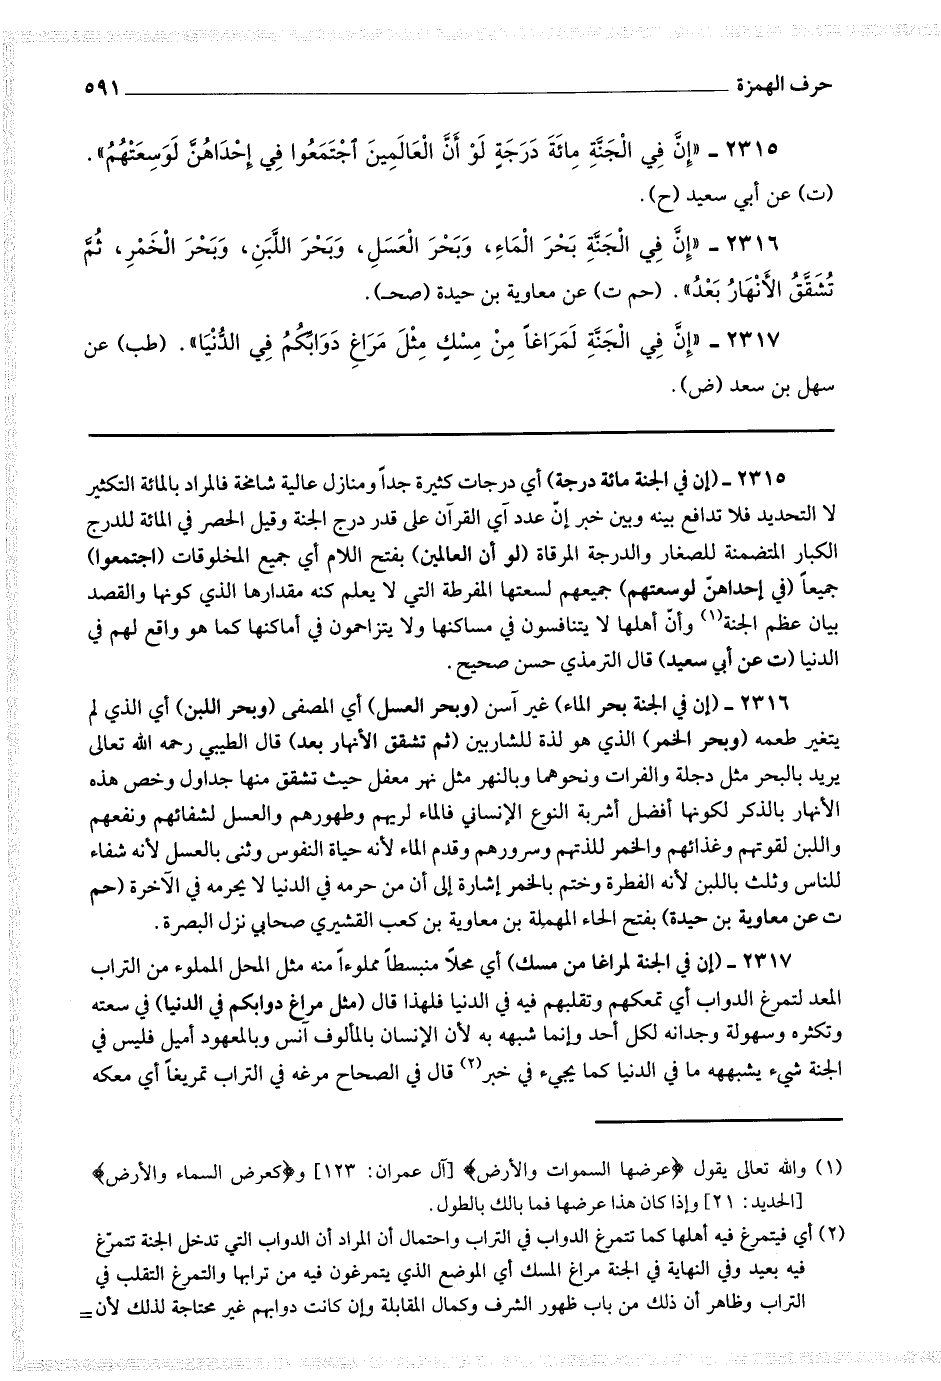 حرف الهمزة ٥٩١
٢٣١٥ ـ «إِنَّ فِي الْجَنَّةِ مِائَةَ دَرَجَةٍ لَوْ أَنَّ الْعَالَمِينَ اجْتَمَعُوا فِي إِحْدَاهُنَّ لَوَسِعَتْهُمْ».
(ت) عن أبي سعيد (ح).
٢٣١٦ ـ «إِنَّ فِي الْجَنَّةِ بَحْرَ الْمَاءِ، وَبَحْرَ الْعَسَلِ، وَبَحْرَ اللَّبَنِ، وَبَحْرَ الْخَمْرِ، ثُمَّ
تُشَقَّقُ الأَنْهَارُ بَعْدُ». (حم ت) عن معاوية بن حيدة (صحـ).
٢٣١٧ ـ «إِنَّ فِي الْجَنَّةِ لَمَرَاغاً مِنْ مِسْكٍ مِثْلَ مَرَاغِ دَوَابِّكُمْ فِي الدُّنْيَا». (طب) عن
سهل بن سعد (ض).
٢٣١٥ ـ (إن في الجنة مائة درجة) أي درجات كثيرة جداً ومنازل عالية شامخة فالمراد بالمائة التكثير
لا التحديد فلا تدافع بينه وبين خبر إنّ عدد آي القرآن على قدر درج الجنة وقيل الحصر في المائة للدرج
الكبار المتضمنة للصغار والدرجة المرقاة (لو أن العالمين) بفتح اللام أي جميع المخلوقات (اجتمعوا)
جميعاً (في إحداهنّ لوسعتهم) جميعهم لسعتها المفرطة التي لا يعلم كنه مقدارها الذي كونها والقصد
بيان عظم الجنة(١) وأنّ أهلها لا يتنافسون في مساكنها ولا يتزاحمون في أماكنها كما هو واقع لهم في
الدنيا (ت عن أبي سعيد) قال الترمذي حسن صحيح.
٢٣١٦ ـ (إن في الجنة بحر الماء) غير آسن (وبحر العسل) أي المصفى (وبحر اللبن) أي الذي لم
يتغير طعمه (وبحر الخمر) الذي هو لذة للشاربين (ثم تشقق الأنهار بعد) قال الطيبي رحمه الله تعالى
يريد بالبحر مثل دجلة والفرات ونحوهما وبالنهر مثل نهر معقل حيث تشقق منها جداول وخص هذه
الأنهار بالذكر لكونها أفضل أشربة النوع الإنساني فالماء لريهم وطهورهم والعسل لشفائهم ونفعهم
واللبن لقوتهم وغذائهم والخمر للذتهم وسرورهم وقدم الماء لأنه حياة النفوس وثنى بالعسل لأنه شفاء
للناس وثلث باللبن لأنه الفطرة وختم بالخمر إشارة إلى أن من حرمه في الدنيا لا يحرمه في الآخرة (حم
ت عن معاوية بن حيدة) بفتح الحاء المهملة بن معاوية بن كعب القشيري صحابي نزل البصرة.
٢٣١٧ ـ (إن في الجنة لمراغا من مسك) أي محلاً منبسطاً مملوءاً منه مثل المحل المملوء من التراب
المعد لتمرغ الدواب أي تمعكهم وتقلبهم فيه في الدنيا فلهذا قال (مثل مراغ دوابكم في الدنيا) في سعته
وتكثره وسهولة وجدانه لكل أحد وإنما شبهه به لأن الإنسان بالمألوف آنس وبالمعهود أميل فليس في
الجنة شيء يشبهه ما في الدنيا كما يجيء في خبر(٢) قال في الصحاح مرغه في التراب تمريغاً أي معكه
(١) والله تعالى يقول ﴿عرضها السموات والأرض﴾ [آل عمران: ١٢٣] و﴿كعرض السماء والأرض﴾
[الحديد: ٢١] وإذا كان هذا عرضها فما بالك بالطول.
(٢) أي فيتمرغ فيه أهلها كما تتمرغ الدواب في التراب واحتمال أن المراد أن الدواب التي تدخل الجنة تتمرّغ
فيه بعيد وفي النهاية في الجنة مراغ المسك أي الموضع الذي يتمرغون فيه من ترابها والتمرغ التقلب في
التراب وظاهر أن ذلك من باب ظهور الشرف وكمال المقابلة وإن كانت دوابهم غير محتاجة لذلك لأن =